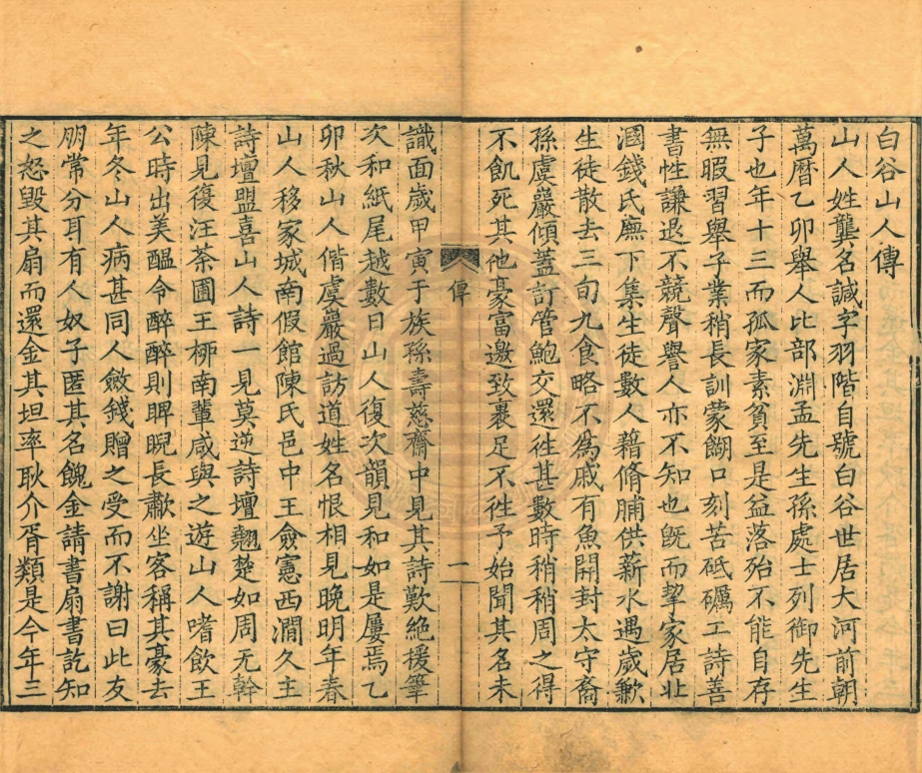 白谷山人傳
山人姓龔名諴字羽階自號白谷世居大河前朝
萬曆乙卯舉人比部淵孟先生孫處士列御先生
子也年十三而孤家素貧至是益落殆不能自存
無暇習舉子業稍長訓蒙餬口刻苦砥礪工詩善
書性謙退不競聲譽人亦不知也旣而挈家居北
漍錢氏廡下集生徒數人藉脩脯供薪水遇歲歉
生徒散去三旬九食略不爲戚有魚開封太守裔
孫虞巖傾蓋訂管鮑交還徃甚數時稍稍周之得
不飢死其他豪富邀致裹足不徃予始聞其名未
傳
一
識面歲甲寅于族孫壽慈齋中見其詩歎絶援筆
次和紙尾越數日山人復次韻見和如是屢焉乙
卯秋山人偕虞巖過訪道姓名恨相見晚明年春
山人移家城南假館陳氏邑中王僉憲西澗久主
詩壇盟喜山人詩一見莫逆詩壇翹楚如周无幹
陳見復汪荼圃王栁南輩咸與之遊山人嗜飲王
公時出美醖令醉醉則睥睨長歗坐客稱其豪去
年冬山人病甚同人斂錢贈之受而不謝曰此友
朋常分耳有人奴子匿其名餽金請書扇書訖知
之怒毀其扇而還金其坦率耿介胥類是今年三